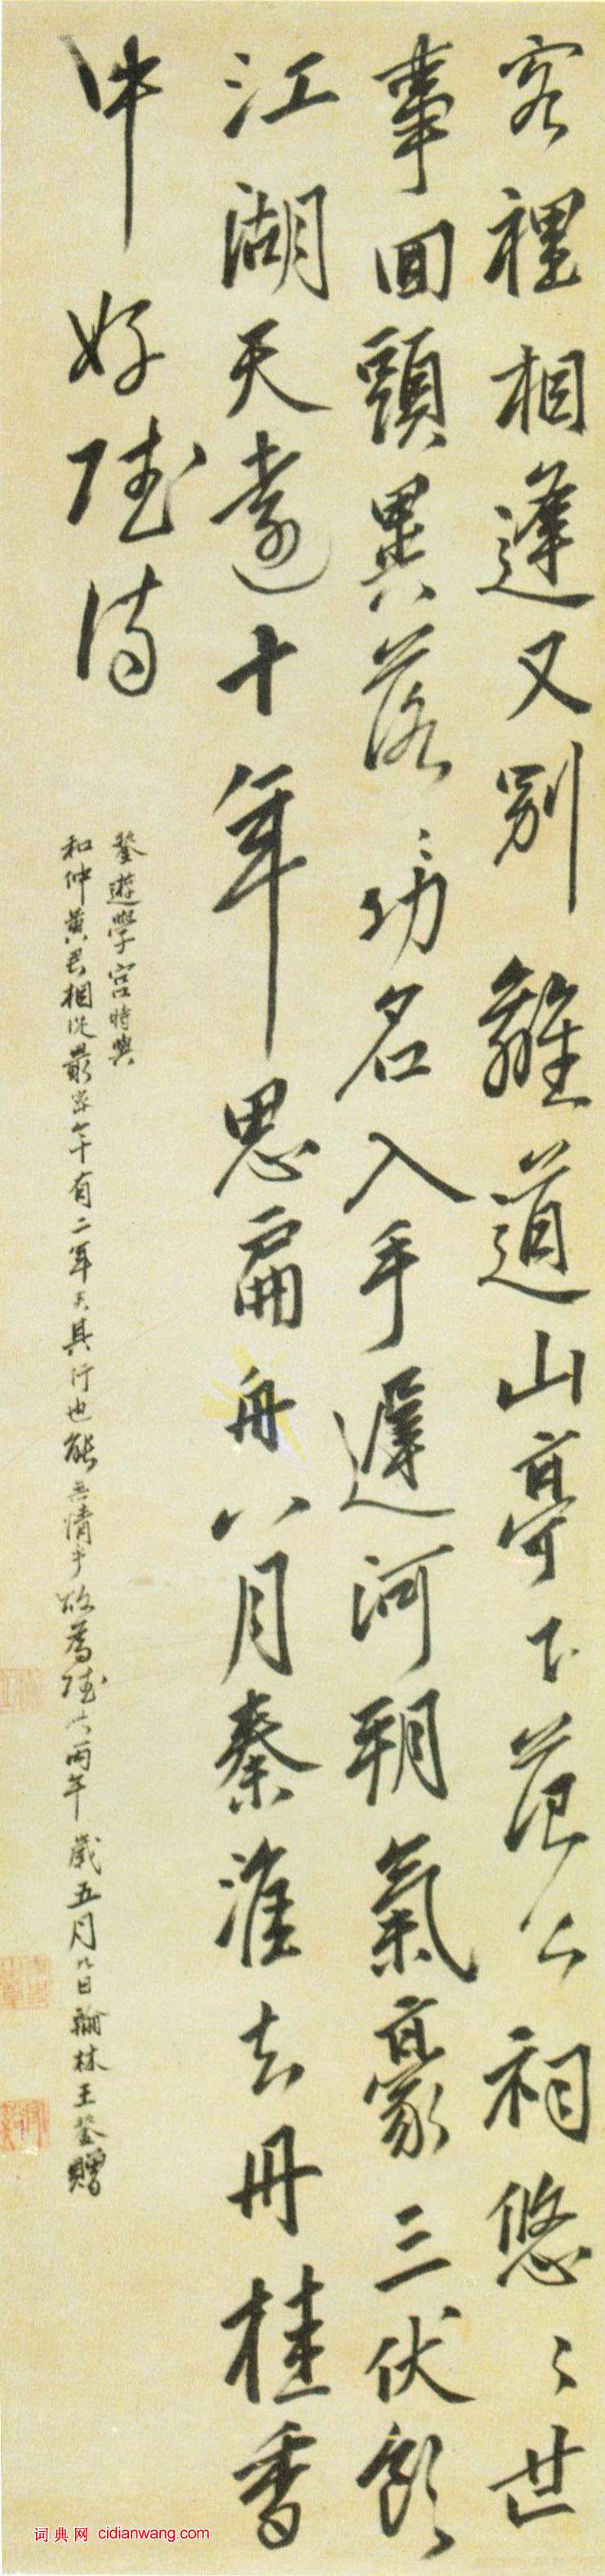 客裡相逢又別離道山亭下范公祠悠〻世
事回頭異落〻功名入手遲河朔氣豪三伏飲
江湖天遠十年思扁舟八月秦淮去丹桂香
中好賦詩
鏊遊學宮時與
和仲黃君相從最密今十有二年矣其行也能無情乎故為賦之丙午歲五月八日翰林王鏊贈
词典网 cidianwang.com